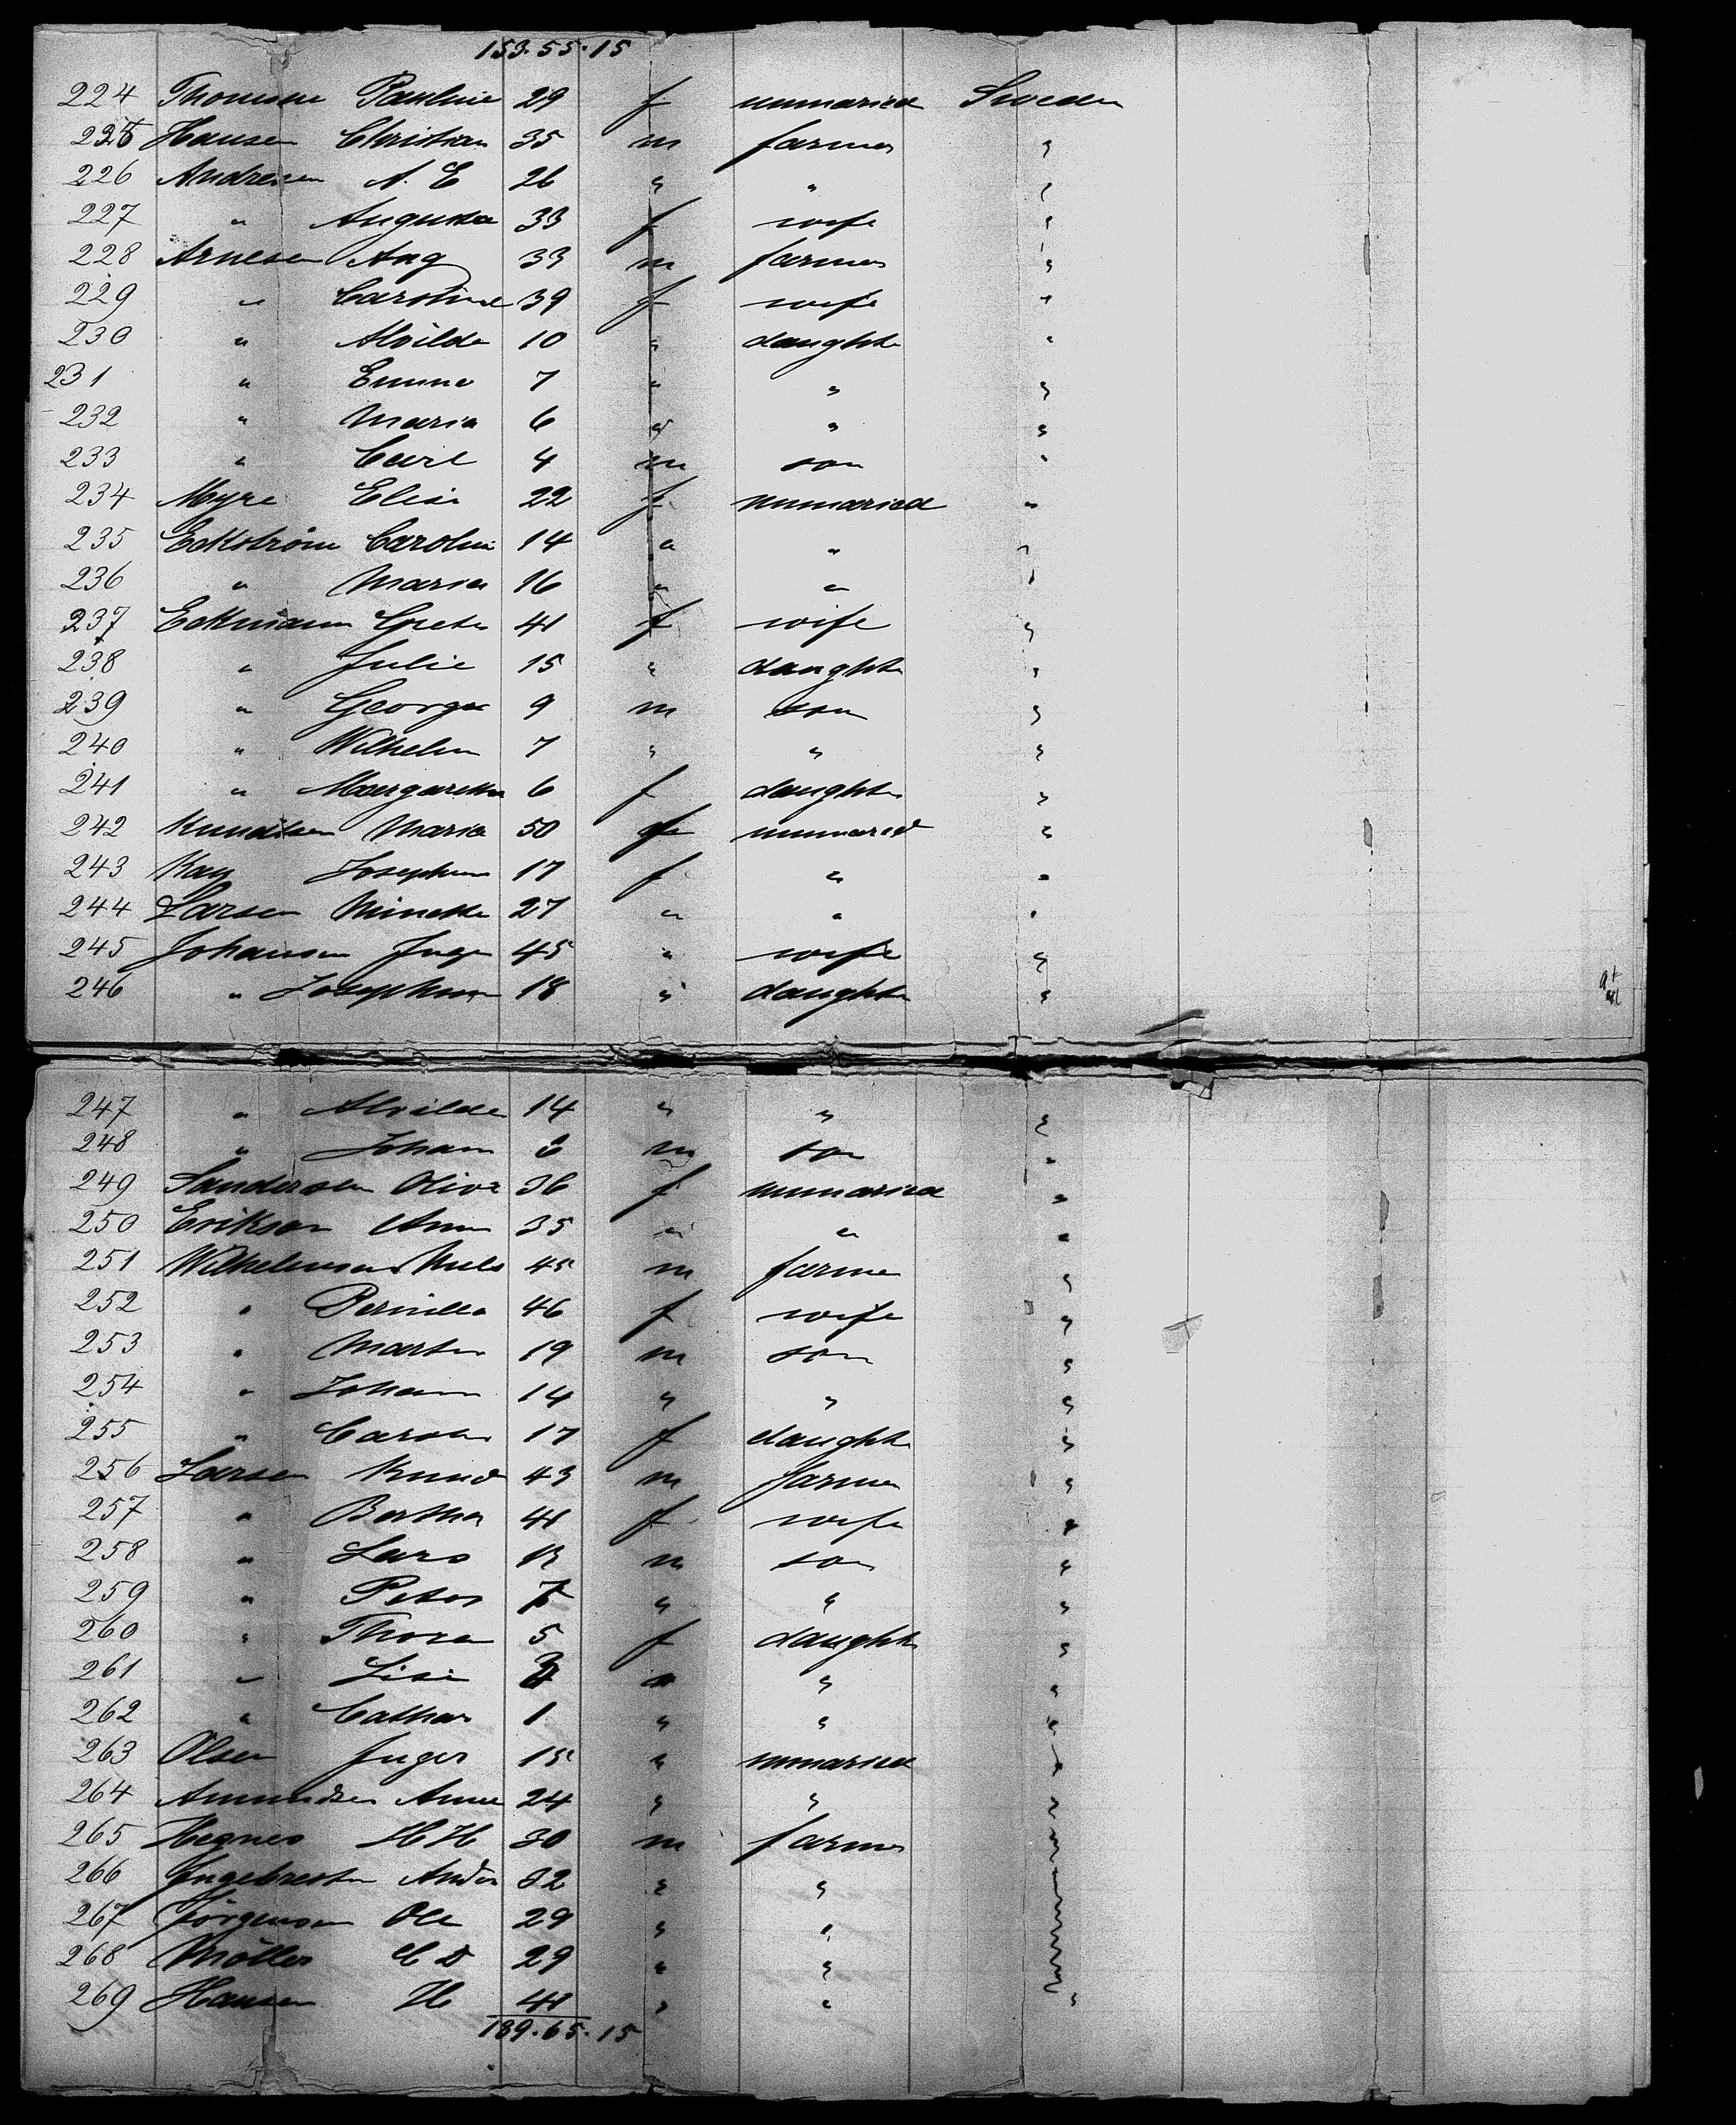 153.55.15
224 Thomsen Pauline 29 f unmaried Sweden
225 Hansen Christian 35 m farmer "
226 Andresen A. E 26 " " "
227 " Augusta 33 f wife "
228 Arnesen Aug 33 m farmer "
229 " Caroline 39 f wife "
230 " Alvilda 10 " daughter "
231 " Emma 7 " " "
232 " Maria 6 " " "
233 " Carl 4 m son "
234 Myre Elise 22 f unmaried "
235 Eckström Carolin 14 " " "
236 " Maria 16 " " "
237 Eckmann Greta 41 f wife "
238 " Julie 15 " daughter "
239 " George 9 m son "
240 " Wilhelm 7 " " "
241 " Margaretha 6 f daughter "
242 Knudtsen Maria 50 f unmaried "
243 Kay Josephine 17 f " "
244 Larsen Minette 27 " " "
245 Johansen Inge 45 " wife "
246 " Josephine 18 " daughter "
247 " Alvilde 14 " " "
248 " Johan m son "
249 Sandersen Olive 36 f unmaried "
250 Erikson Ann 35 " " "
251 Wilhelmsen Nils 45 m farmer "
252 " Pernilla 46 f wife "
253 " Martin 19 m son "
254 " Johann 14 " " "
255 " Carolin 17 f daughter "
256 Larsen Knud 43 m farmer "
257 " Bertha 41 f wife "
258 " Lars m son "
259 " Peter 7 " " "
260 " Thora 5 f daughter "
261 " Lise " " "
262 " Cathar 1 " " "
263 Olsen Inger 15 " unmaried "
264 Amundsen Anne 24 " " "
265 Hegnes H H 30 m farmer "
266 Ingebretsen Anders 32 " " "
267 Jörgensen Ole 29 " " "
268 Möller C D 29 " " "
269 Hansen H 41 " " "
189.65.15